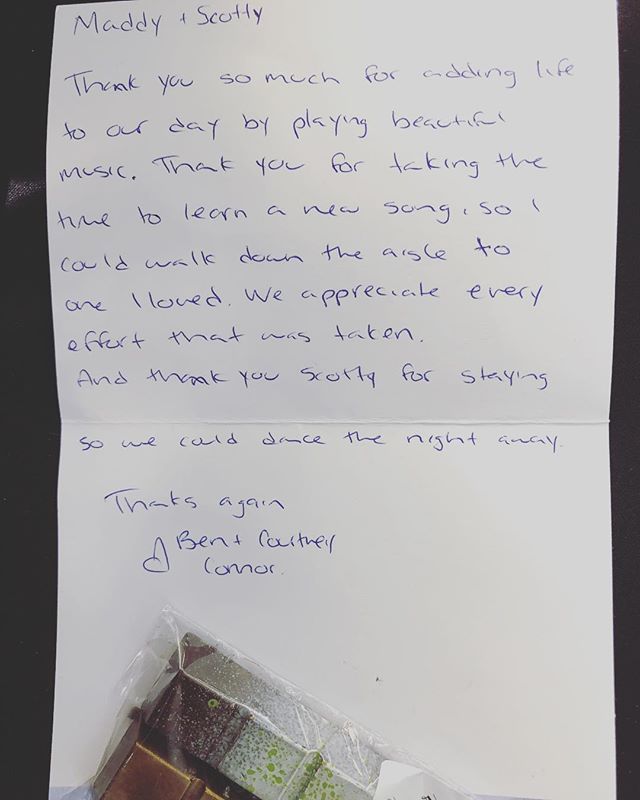 Maddy + Scotty
Thank you so much for adding life
to our day by playing beautiful
music. Thank you for taking the
time to learn a new song, so I
could walk down the aisle to
one I loved. We appreciate every
effort that was taken.
And thank you Scotty for staying
so we could dance the night away.
Thanks again
Ben + Courtney
Connor.